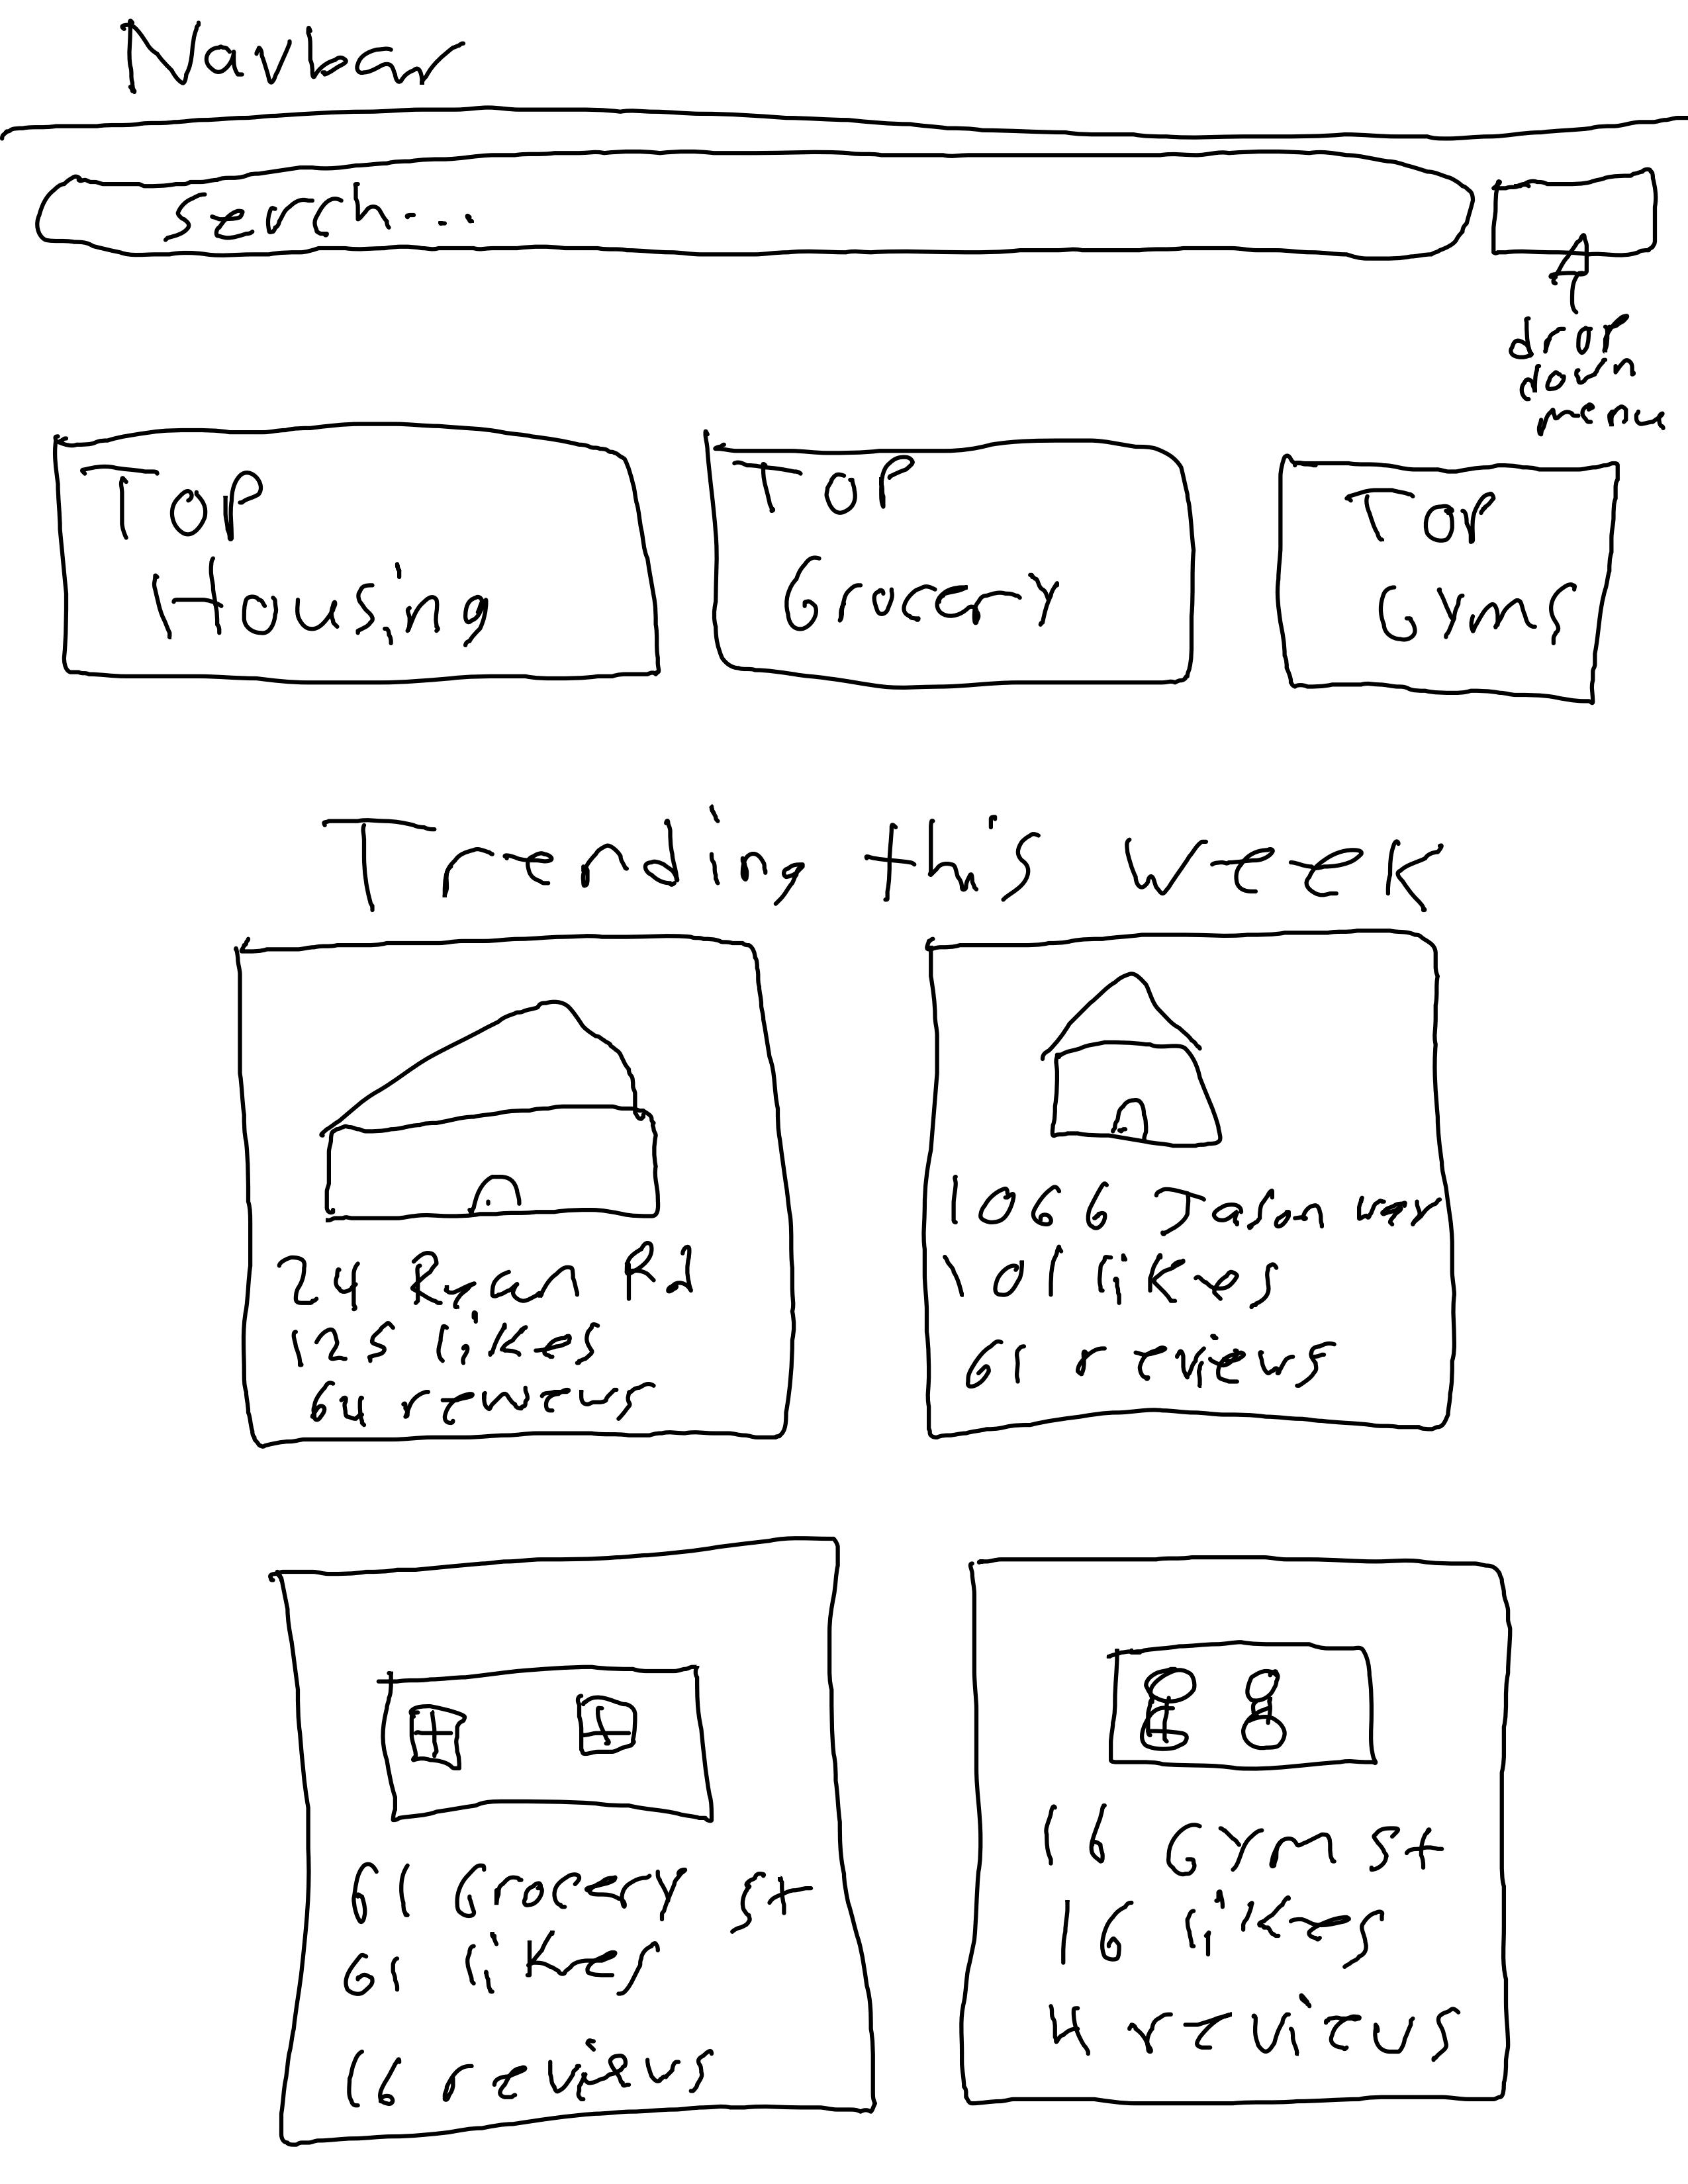 Navbar
Serch...
drop
down
menu
Top
Housing
Top
Grocery
Top
Gyms
Trending this week
24 Rd
125 likes
64 reviews
1066
101 likes
61 reviews
61 Grocery st
61 likes
16 reviews
16 Gym st
16 likes
11 reviews